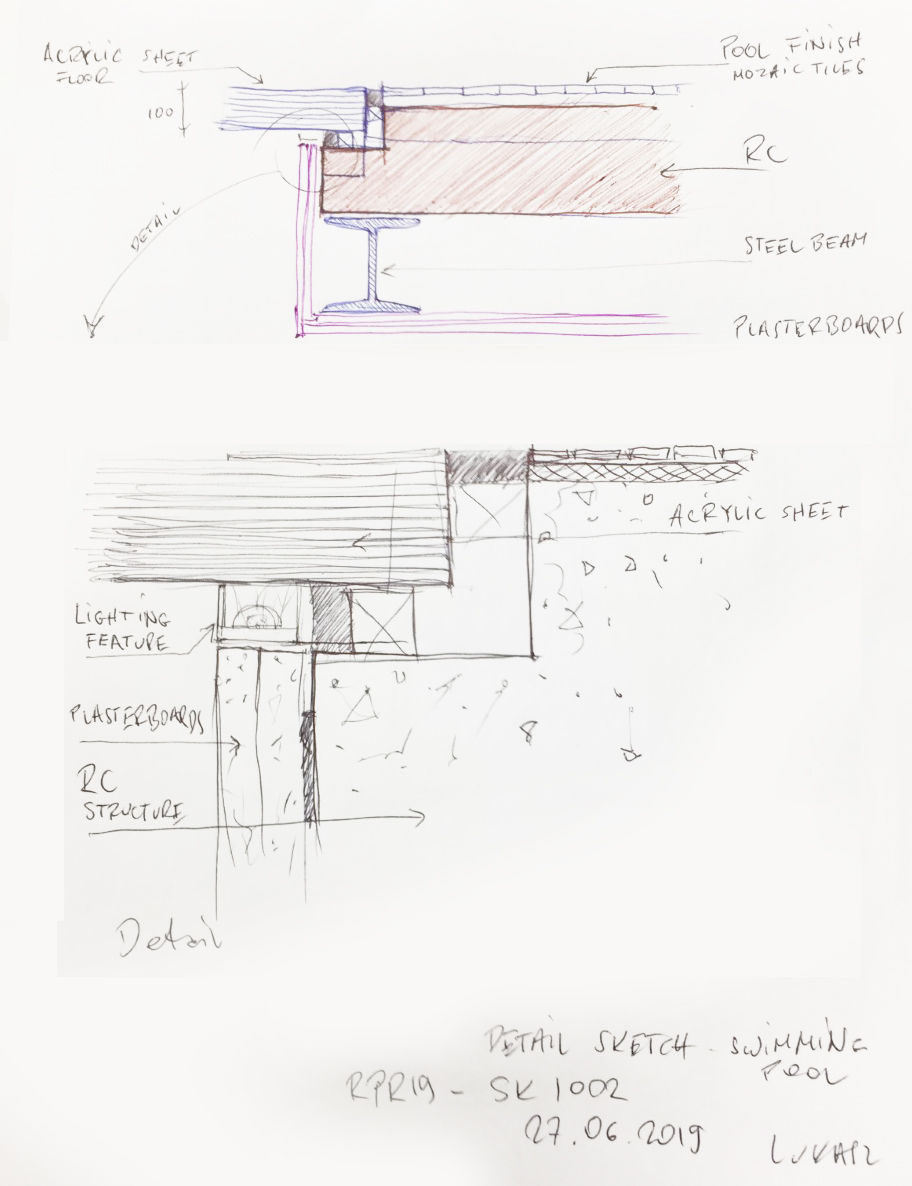 ACRYLIC SHEET
FLOOR
100
POOL FINISH
MOZAIC TILES
RC
DETAIL
STEEL BEAM
PLASTERBOARDS
ACRYLIC SHEET
LIGHTING
FEATURE
PLASTERBOARDS
RC
STRUCTURE
Detail
DETAIL SKETCH - SWIMMING
POOL
RPR19 - SK 1002
27.06.2019
LUKASZ